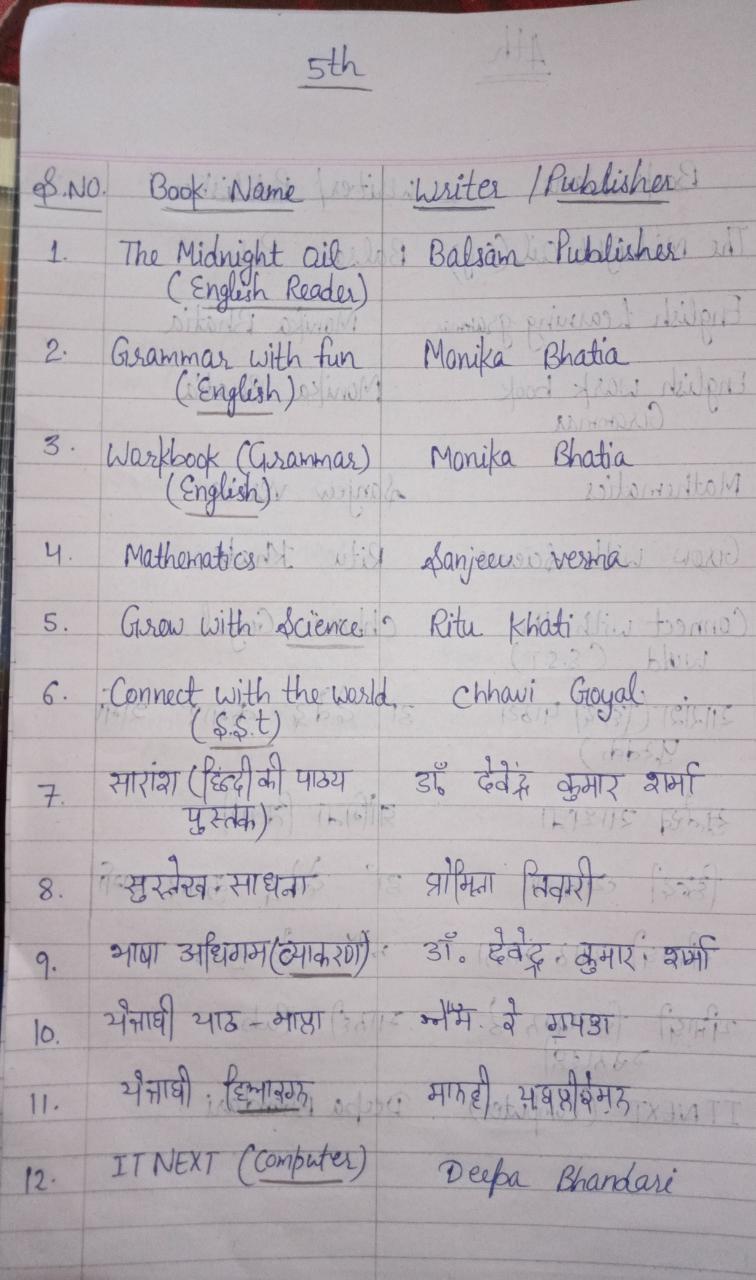 5th
S.NO. Book Name Writer / Publisher
1. The Midnight Oil : Balsam Publisher.
(English Reader)
2. Grammar with fun Monika Bhatia
(English)
3. Workbook (Grammar) Monika Bhatia
(English)
4. Mathematics Sanjeev verma
5. Grow with Science Ritu Khati
6. Connect with the world Chhavi Goyal
(S.S.t)
7. सारांश (हिंदी की पाठय डॉ॰ देवेंद्र कुमार शर्मा
पुस्तक)
8. सुरलेख साधना प्रोमिला तिवारी
9. भाषा अधिगम (व्याकरण) डॉ॰ देवेंद्र कुमार शर्मा
10. ਪੰਜਾਬੀ ਪਾਠ - ਮਾਲਾ ਐਮ. ਕੇ ਗੁਪਤਾ
11. ਪੰਜਾਬੀ ਵਿਆਕਰਨ
12. IT NEXT (Computer) Deepa Bhandari